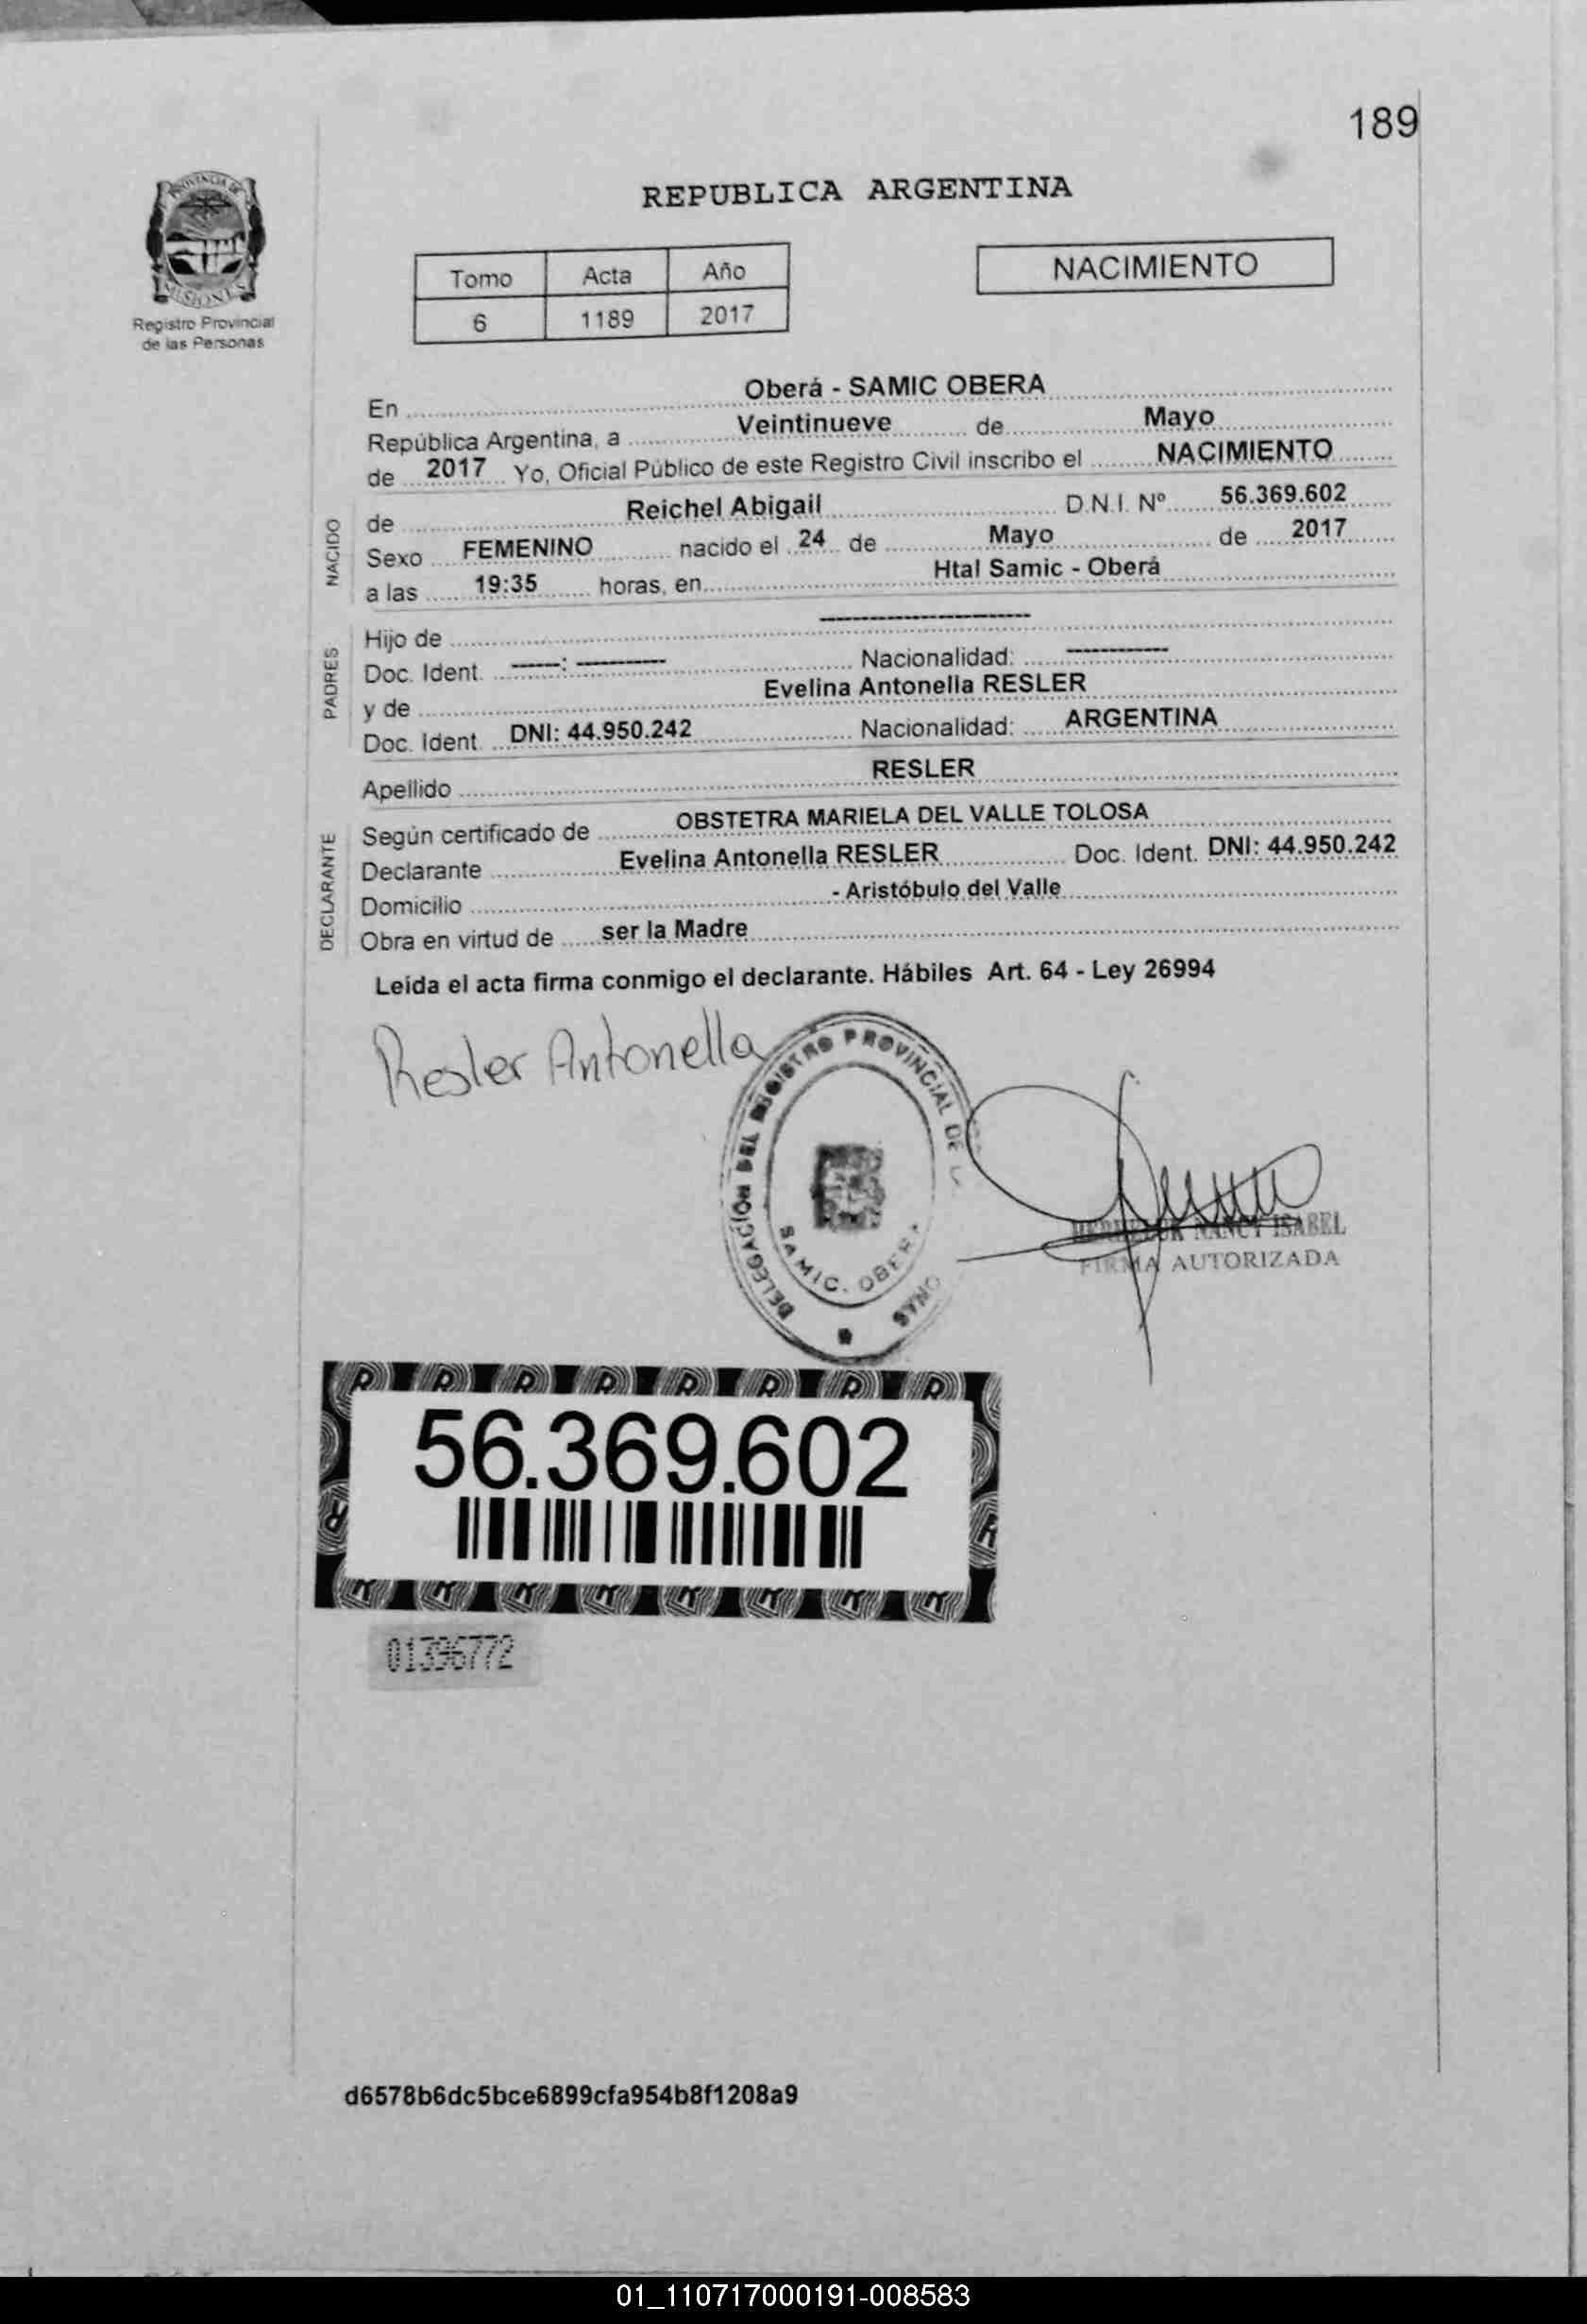 189
PROVINCIA DE
MISIONES
Registro Provincial
de las Personas
REPUBLICA ARGENTINA
Tomo Acta Año
6 1189 2017
NACIMIENTO
En Oberá - SAMIC OBERA
República Argentina, a Veintinueve de Mayo
de 2017 Yo, Oficial Público de este Registro Civil inscribo el NACIMIENTO
NACIDO
de Reichel Abigail D.N.I. Nº 56.369.602
Sexo FEMENINO nacido el 24 de Mayo de 2017
a las 19:35 horas, en Htal Samic - Oberá
PADRES
Hijo de --------------------
Doc. Ident. -----: --------- Nacionalidad: ----------
y de Evelina Antonella RESLER
Doc. Ident. DNI: 44.950.242 Nacionalidad: ARGENTINA
Apellido RESLER
DECLARANTE
Según certificado de OBSTETRA MARIELA DEL VALLE TOLOSA
Declarante Evelina Antonella RESLER Doc. Ident. DNI: 44.950.242
Domicilio - Aristóbulo del Valle
Obra en virtud de ser la Madre
Leída el acta firma conmigo el declarante. Hábiles Art. 64 - Ley 26994
Resler Antonella
DELEGACIÓN DEL REGISTRO PROVINCIAL DE
SAMIC. OBERA
NANCY ISABEL
FIRMA AUTORIZADA
56.369.602
01396772
d6578b6dc5bce6899cfa954b8f1208a9
01_110717000191-008583